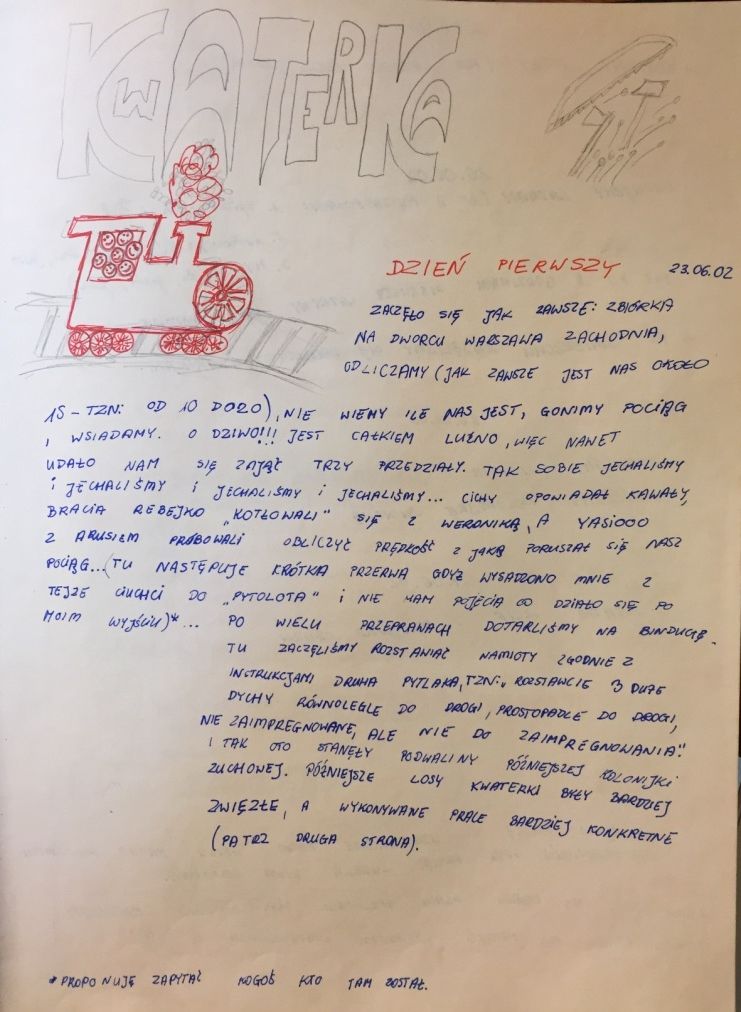 KWATERKA
DZIEŃ PIERWSZY 23.06.02
ZACZĘŁO SIĘ JAK ZAWSZE: ZBIÓRKA
NA DWORCU WARSZAWA ZACHODNIA,
ODLICZAMY (JAK ZAWSZE JEST NAS OKOŁO
15 - TZN: OD 10 DO20), NIE WIEMY ILE NAS JEST, GONIMY POCIĄG
, WSIADAMY. O DZIWO!!! JEST CAŁKIEM LUŹNO, WIĘC NAWET
UDAŁO NAM SIĘ ZAJĄĆ TRZY PRZEDZIAŁY. TAK SOBIE JECHALIŚMY
I JECHALIŚMY I JECHALIŚMY I JECHALIŚMY... CICHY OPOWIADAŁ KAWAŁY,
BRACIA REBEJKO „KOTŁOWALI" SIĘ Z WERONIKĄ, A YASIOOO
Z ARUSIEM PRÓBOWALI OBLICZYĆ PRĘDKOŚĆ Z JAKĄ PORUSZAŁ SIĘ NASZ
POCIĄG...(TU NASTĘPUJE KRÓTKA PRZERWA GDYŻ WYSADZONO MNIE Z
TEJŻE CIUCHCI DO „PYTOLOTA" I NIE MAM POJĘCIA CO DZIAŁO SIĘ PO
MOIM WYJŚCIU)*... PO WIELU PRZEPRAWACH DOTARLIŚMY NA BINDUGĘ.
TU ZACZĘLIŚMY ROZSTAWIAĆ NAMIOTY ZGODNIE Z
INSTRUKCJAMI DRUHA PYTLAKA, TZN: „ROZSTAWCIE 3 DUŻE
DYCHY RÓWNOLEGLE DO DROGI, PROSTOPADLE DO DROGI,
NIE ZAIMPREGNOWANE, ALE NIE DO ZAIMPREGNOWANIA".
I TAK OTO STANĘŁY PODWALINY PÓŹNIEJSZEJ KOLONIJKI
ZUCHOWEJ. PÓŹNIEJSZE LOSY KWATERKI BYŁY BARDZIEJ
ZWIĘZŁE, A WYKONYWANE PRACE BARDZIEJ KONKRETNE
(PATRZ DRUGA STRONA).
*PROPONUJĘ ZAPYTAĆ KOGOŚ KTO TAM ZOSTAŁ.